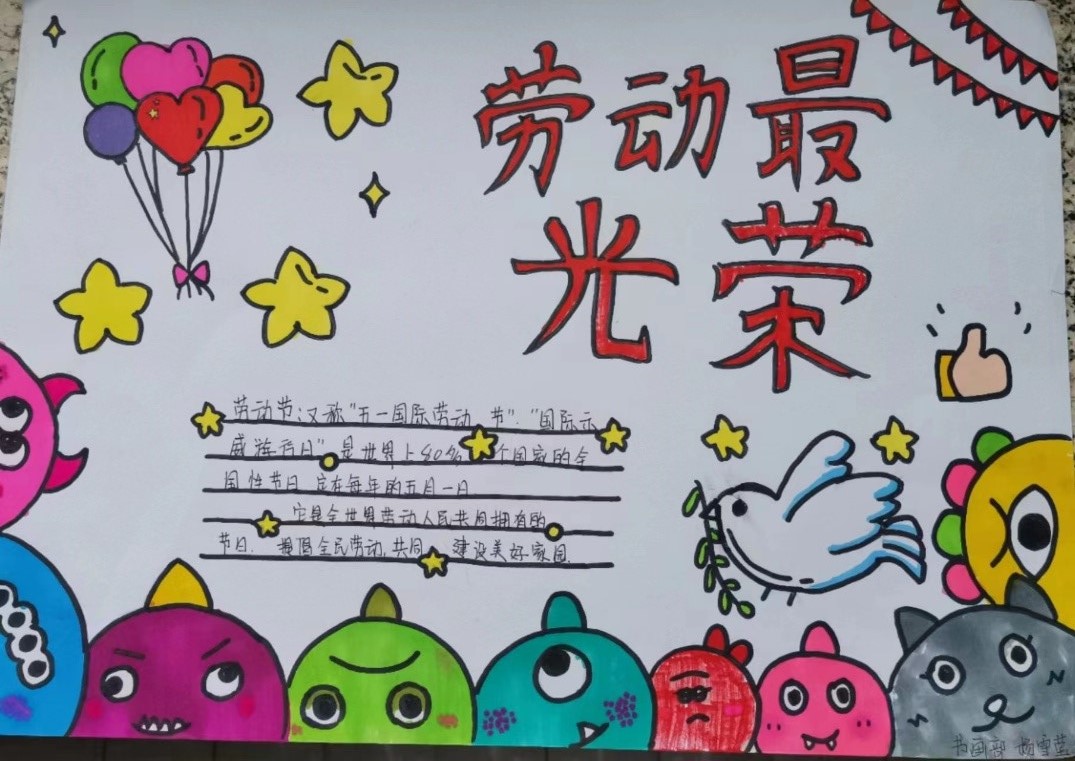 劳动最
光荣
劳动节:又称"五一国际劳动节"."国际示
威游行日"是世界上80多个国家的全
国性节日.定在每年的五月一日
它是全世界劳动人民共同拥有的
节日. 提倡全民劳动,共同 建设美好家园.
书画部 杨雪蓝